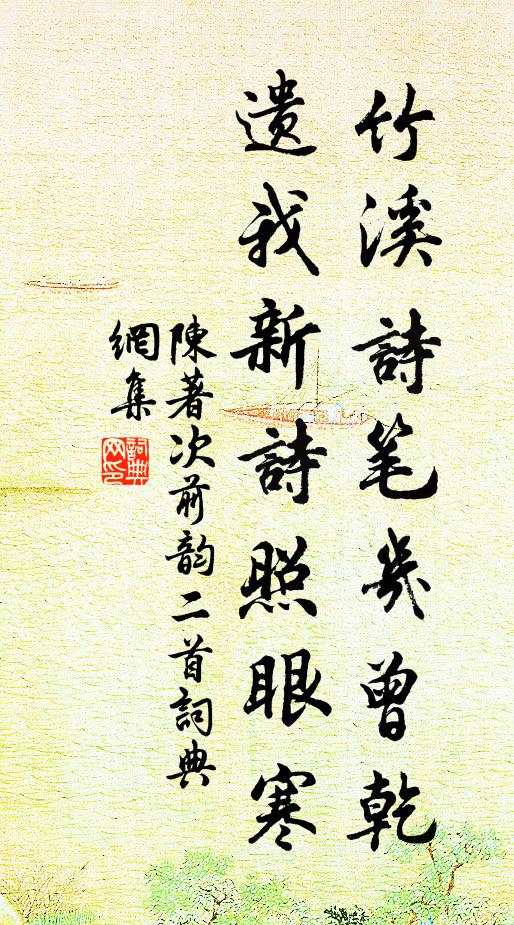 竹溪詩笔幾曾乾
遗我新詩照眼寒
陳著次前韵二首詞典
網集
詞典
网印